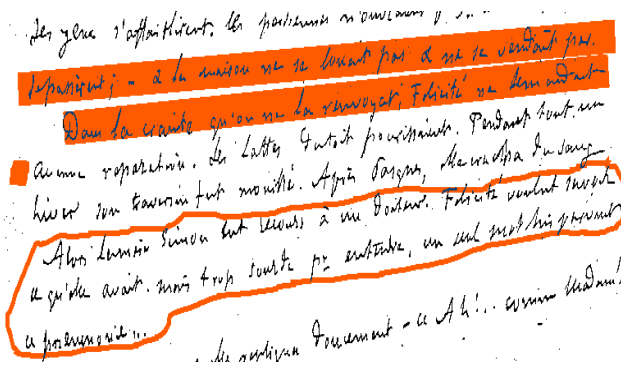 Ses yeux s'affaiblirent. les persiennes n'ouvraient p
se passèrent ; - & la maison ne se louait pas & ne se vendait pas.
Dans la crainte qu'on ne la renvoyat, Felicité ne demandait
aucune reparation. Les lattes du toit pourrissaient. Pendant tout un
hiver son traversin fut mouillé. Après Pasques, elle cracha du sang
Alors la mère Simon eut recours à un Docteur. Felicité voulut savoir
ce qu'elle avait. mais trop sourde pr entendre, un seul mot lui parvint
ce pneumonie...
elle repliqua doucement - « Ah!.. comme Madame